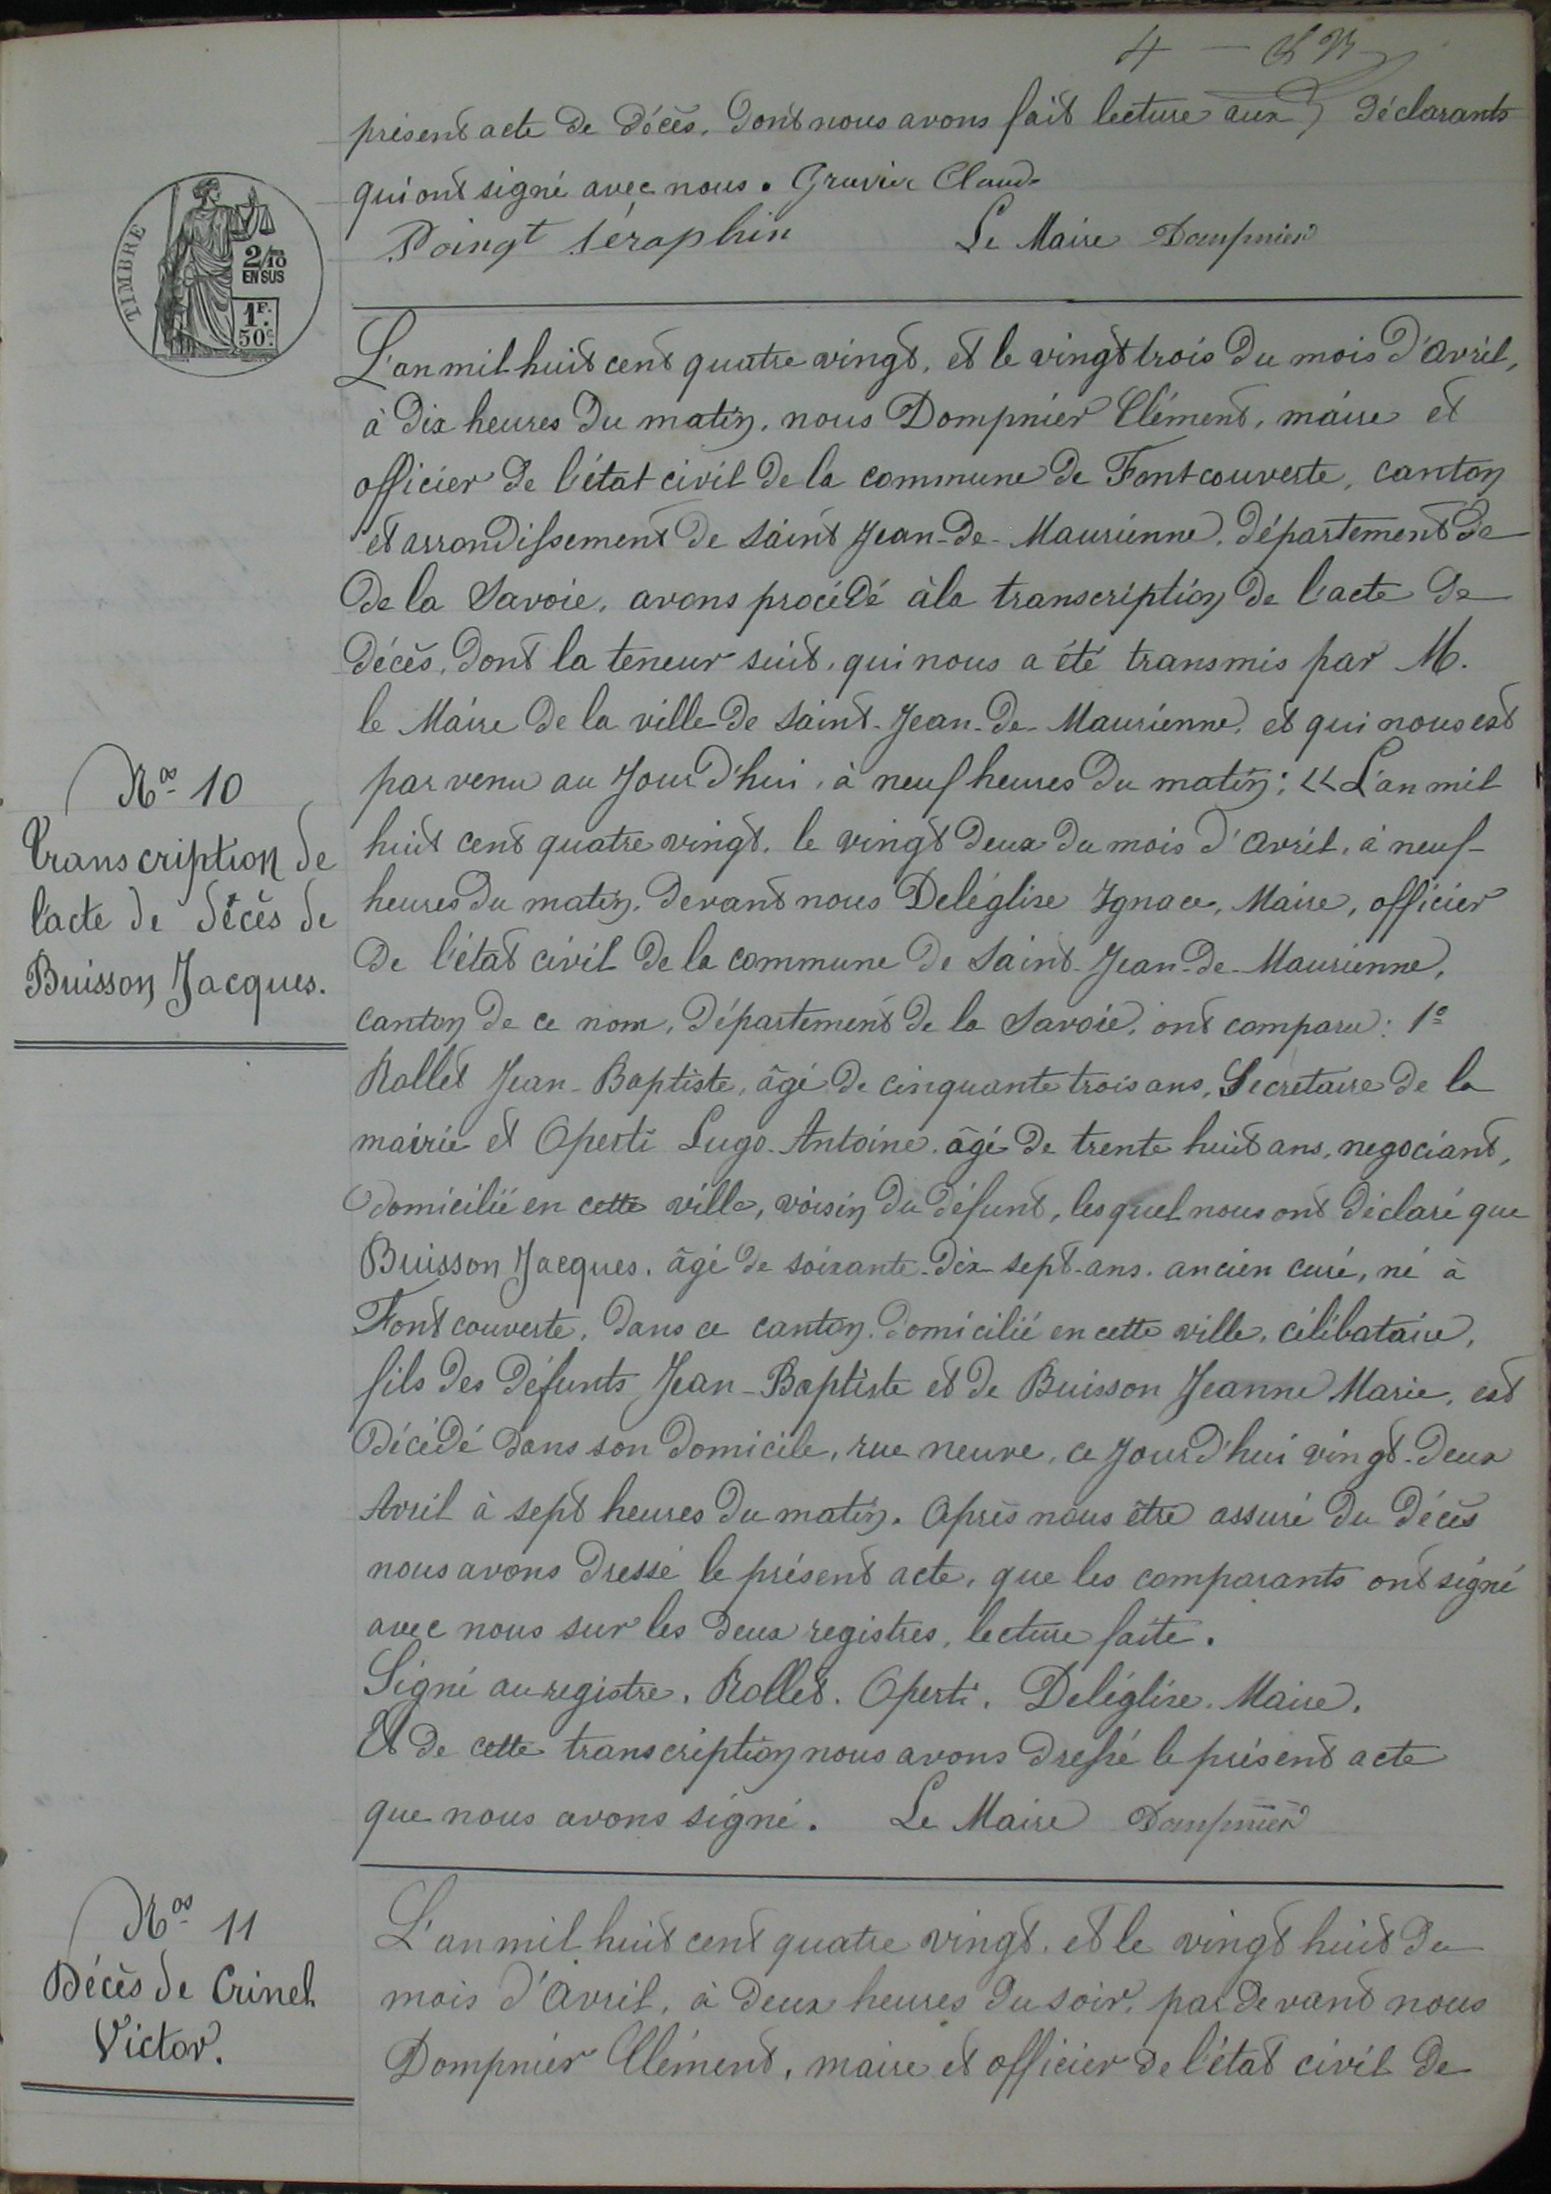 4
présent acte de décès, dont nous avons fait lecture aux déclarants
qui ont signé avec nous. Gravier Claude
Poingt Séraphin Le Maire Dompnier
TIMBRE
2/10
EN SUS
1F.
50c.
L'an mil huit cent quatre vingt, et le vingt trois du mois d'Avril,
à dix heures du matin, nous Dompnier Clément, maire et
officier de l'état civil de la commune de Fontcouverte, canton
et arrondissement de Saint Jean-de-Maurienne, département de
de la Savoie, avons procédé à la transcription de l'acte de
décès, dont la teneur suit, qui nous a été transmis par M.
le Maire de la ville de Saint-Jean-de-Maurienne, et qui nous est
parvenu au Jour d'hui, à neuf heures du matin; << L'an mil
huit cent quatre vingt, le vingt deux du mois d'Avril, à neuf
heures du matin, devant nous Deléglise Ignace, Maire, officier
de l'état civil de la commune de Saint-Jean-de-Maurienne,
canton de ce nom, département de la Savoie, ont comparu: 1º
Rollet Jean-Baptiste, âgé de cinquante trois ans, Secretaire de la
mairie et Operti Lugo-Antoine, âgé de trente huit ans, negociant,
domicilié en cette ville, voisin du défunt, lesquel nous ont déclaré que
Buisson Jacques, âgé de soixante-dix-sept-ans, ancien curé, né à
Fontcouverte, dans ce canton, domicilié en cette ville, célibataire,
fils des défunts Jean-Baptiste et de Buisson Jeanne Marie, est
décédé dans son domicile, rue neuve, ce Jourd'hui vingt-deux
Avril à sept heures du matin. Après nous être assuré du décès
nous avons dressé le présent acte, que les comparants ont signé
avec nous sur les deux registres, lecture faite.
Signé au registre, Rollet. Operti. Deléglise. Maire.
Et de cette transcription nous avons dressé le présent acte
que nous avons signé. Le Maire Dompnier
Nos 10
Transcription de
l'acte de décès de
Buisson Jacques.
Nos 11
Décès de Crinel
Victor.
L'an mil huit cent quatre vingt, et le vingt huit du
mois d'Avril, à deux heures du soir, par devant nous
Dompnier Clément, maire et officier de l'état civil de